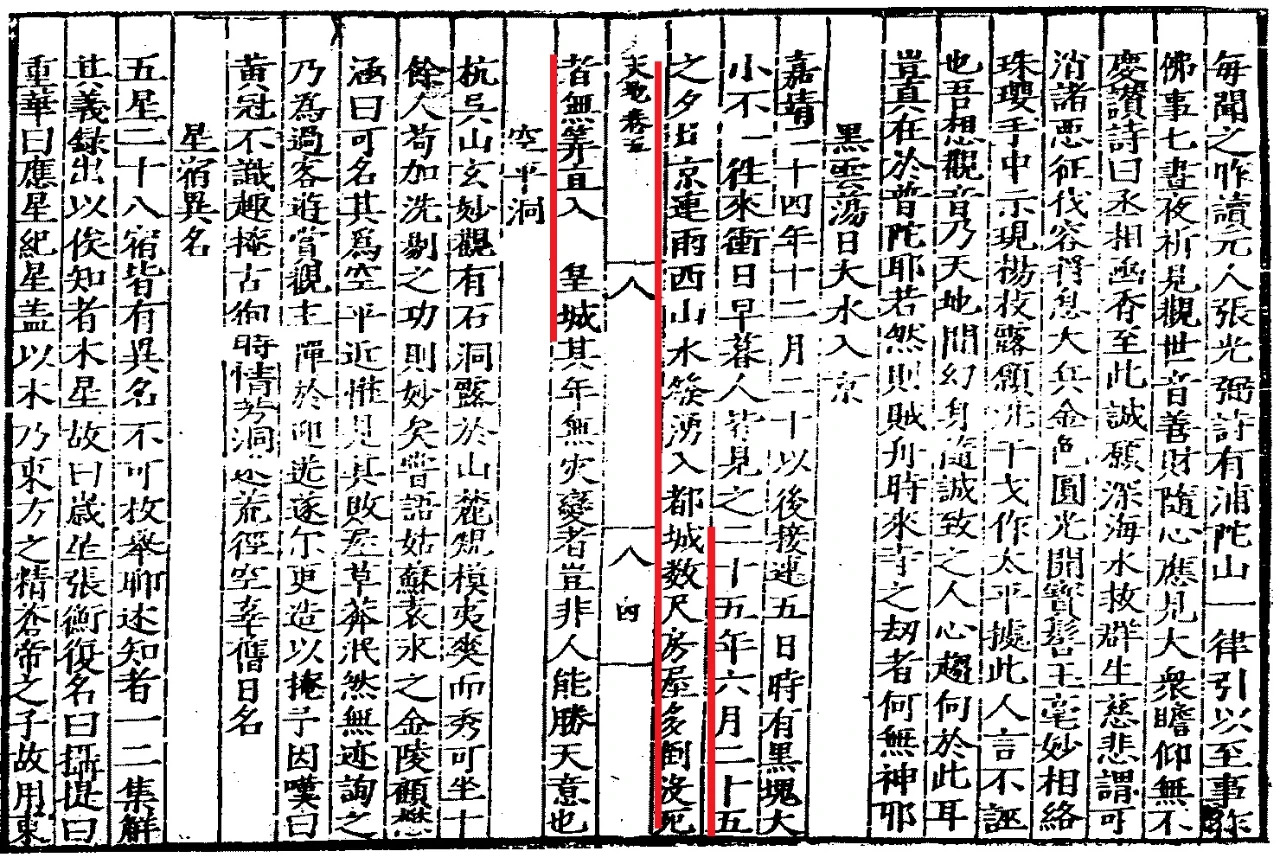 每聞之昨讀元人張光弼詩有浦陀山一律引以至事
佛事七晝夜祈見觀世音善財隨心應見大衆瞻仰無不
慶讚詩曰丞相函香至此誠願深海水救群生慈悲謂可
消諸惡征伐容得息大兵金色圓光開寶髻玉毫妙相絡
珠瓔手中示現楊枝露願洗干戈作太平據此人言不誣
也吾想觀音乃天地間幻身隨誠致之人心趨向於此耳
豈真在於普陀耶若然則賊舟時來寺之刼者何無神耶
黑雲蕩日大水入京
嘉靖二十四年十二月二十以後接連五日時有黑塊大
小不一徃來衝日早暮人皆見之二十五年六月二十五
之夕出京連雨西山水發湧入都城数尺房屋多倒没死
天地卷五
八
八
四
者無筭直入 皇城其年無灾變者豈非人能勝天意也
空平洞
杭吳山玄妙觀有石洞露於山麓規模夷奕而秀可坐十
餘人苟加洗剔之功則妙矣嘗語姑蘇袁水之金陵顧懋
涵曰可名其爲空平近惟見其敗壁草莽泯然無迹詢之
乃爲過客遊賞觀主憚於迎迓遂尔更造以掩予因嘆曰
黄冠不識趣掩古徇時情芳洞迷荒徑空幸舊日名
星宿異名
五星二十八宿皆有異名不可枚舉聊述知者一二集解
其義録出以俟知者木星故曰歲星張衡復名曰攝提曰
重華曰應星紀星盖以木乃東方之精蒼帝之子故用東